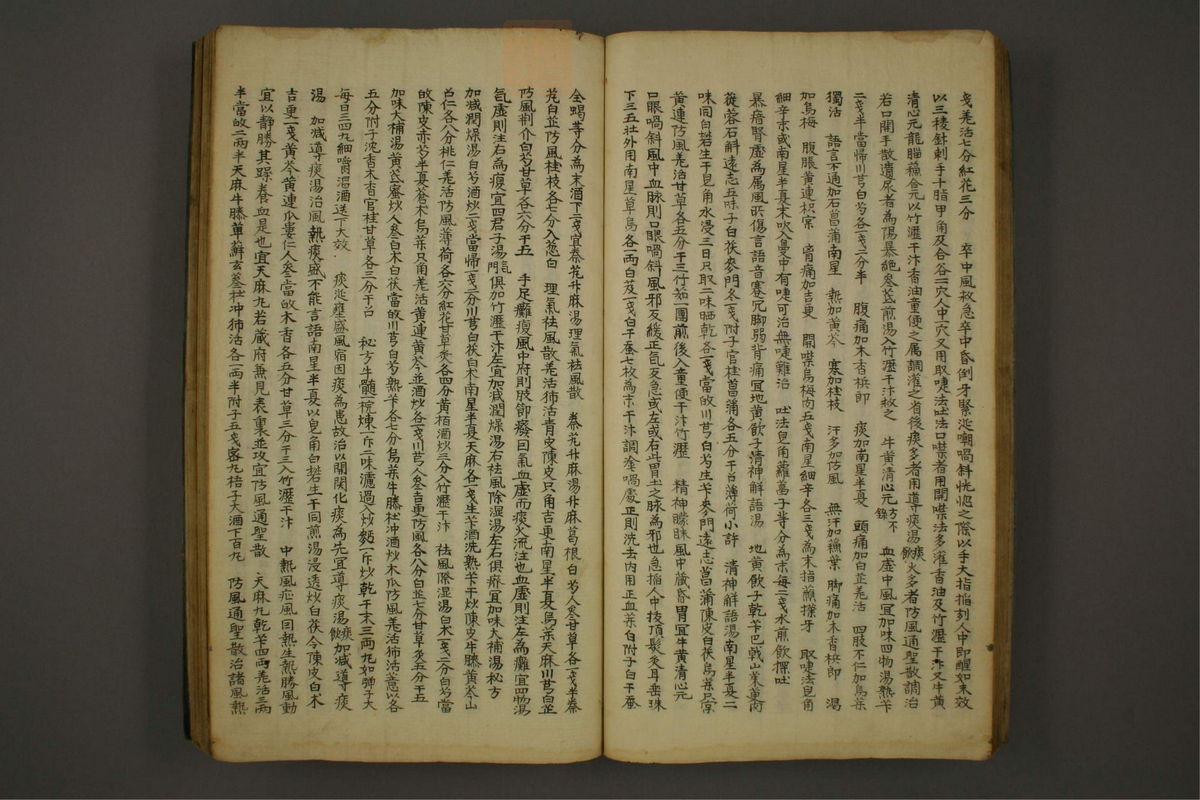 戔羌活七分紅花三分 卒中風救急卒中昏倒牙緊涎嘲喎斜恍惚之際以手大指掐刻人中即醒如未效
以三稜針刺手十指甲角及合谷二穴人中一穴又用取嚏法吐法口噤者用開噤法多灌香油及竹瀝干汁又牛黃
清心元龍腦蘓合元以竹瀝干汁香油童便之属調灌之省後痰多者用導痰湯火多者防風通聖散調治
若口開手散遺尿者為陽暴絶參芪煎湯入竹瀝干汁救之 牛黃清心元方不錄 血虛中風宜加味四物湯熟卞
二戔半當帰川芎白芍各一戔二分半 腹痛加木香梹郎 痰加南星半夏 頭痛加白芷羌活 四肢不仁加烏藥
獨活 語言不通加石菖蒲南星 熱加黃芩 寒加桂枝 汗多加防風 無汗加蘓葉 脚痛加木香梹郎 渴
加烏梅 腹脹黃連枳宲 脅痛加吉更 開噤烏梅肉五戔南星細辛各三戔為末指蘸擦牙 取嚏法皂角
細辛末或南星半夏末吹入鼻中有嚏可治無嚏難治 吐法皂角蘿葍子等分為末每二戔水煎飲探吐
暴瘖腎虛為属風所傷言語音蹇冗脚弱背痛宜地黃飲子清神解語湯 地黃飲子乾卞巴戟山茱萸肉
蓯蓉石斛遠志五味子白茯麥門冬一戔附子官桂菖蒲各五分干五薄荷小許 清神解語湯南星半夏二
味同白礬生干皂角水浸三日只取二味晒乾各一戔當故川芎白芍生卞麥門遠志菖蒲陳皮白茯烏藥只宲
黃連防風羌活甘草各五分干三竹茹一團煎後入童便干汁竹瀝 精神矇昧風中藏昏冒宜牛黃清心元
口眼喎斜風中血脉則口眼喎斜風邪反緩正氣反急或左或右此胃土之脉為邪也急掐人中抜頂髮灸耳垂珠
下三五壮外用南星草烏各一兩白芨一戔白干蚕七枚為末干汁調塗喎處正則洗去内用正血藥白附子白干蚕
全蝎等分為末酒下二戔宜秦艽升麻湯理氣祛風散 秦艽升麻湯升麻葛根白芍人參甘草各一戔半秦
艽白芷防風桂枝各七分入葱白 理氣祛風散羌活獨活青皮陳皮只角吉更南星半夏烏藥天麻川芎白芷
防風荆介白芍甘草各六分干五 手足癱瘓風中府則肢節癈曰氣血虛而痰火流注也血虛則注左為癱宜四物湯
氣虛則注右為瘓宜四君子湯俱加竹瀝干汁左宜加減潤燥湯右祛風除湿湯左右俱癈宜加味大補湯秘方
加減潤燥湯白芍酒炒二戔當帰一戔二分川芎白茯白朮南星半夏天麻各一戔生卞酒洗熟卞干炒陳皮牛膝黃芩山
召仁各八分桃仁羌活防風薄荷各六分紅花甘草炙各四分黃栢酒炒三分入竹瀝干汁 祛風除湿湯白朮一戔二分白芍當
故陳皮赤芍半夏蒼朮烏藥只角羌活黃連黃芩並酒炒各一戔川芎人參吉更防風各八分白芷七分甘草炙五分干五
加味大補湯黃芪蜜炒人參白朮白茯當故川芎白芍熟卞各七分烏藥牛膝杜冲酒炒木瓜防風羌活獨活薏以各
五分附子沈香木香官桂甘草各三分干召 秘方牛髓一椀煉一斤二味濾過入炒麪一斤炒乾干末三兩丸如弾子大
每日三四丸細嚼温酒送下大效 痰涎壅盛風宿因痰為患故治以開関化痰為先宜導痰湯加減導痰
湯 加減導痰湯治風熱痰盛不能言語南星半夏以皂角白礬生干同煎湯浸透炒白茯令陳皮白朮
吉更一戔黃芩黃連瓜蔞仁人參當故木香各五分甘草三分干三入竹瀝干汁 中熱風症風曰熱生熱勝風動
宜以靜勝其躁養血是也宜天麻丸若藏府無見表裏並攻宜防風通聖散 天麻丸乾卞四兩羌活三兩
半當故二兩半天麻牛膝萆薢玄參杜冲獨活各一兩半附子五戔密丸梧子大酒下百丸 防風通聖散治諸風熱